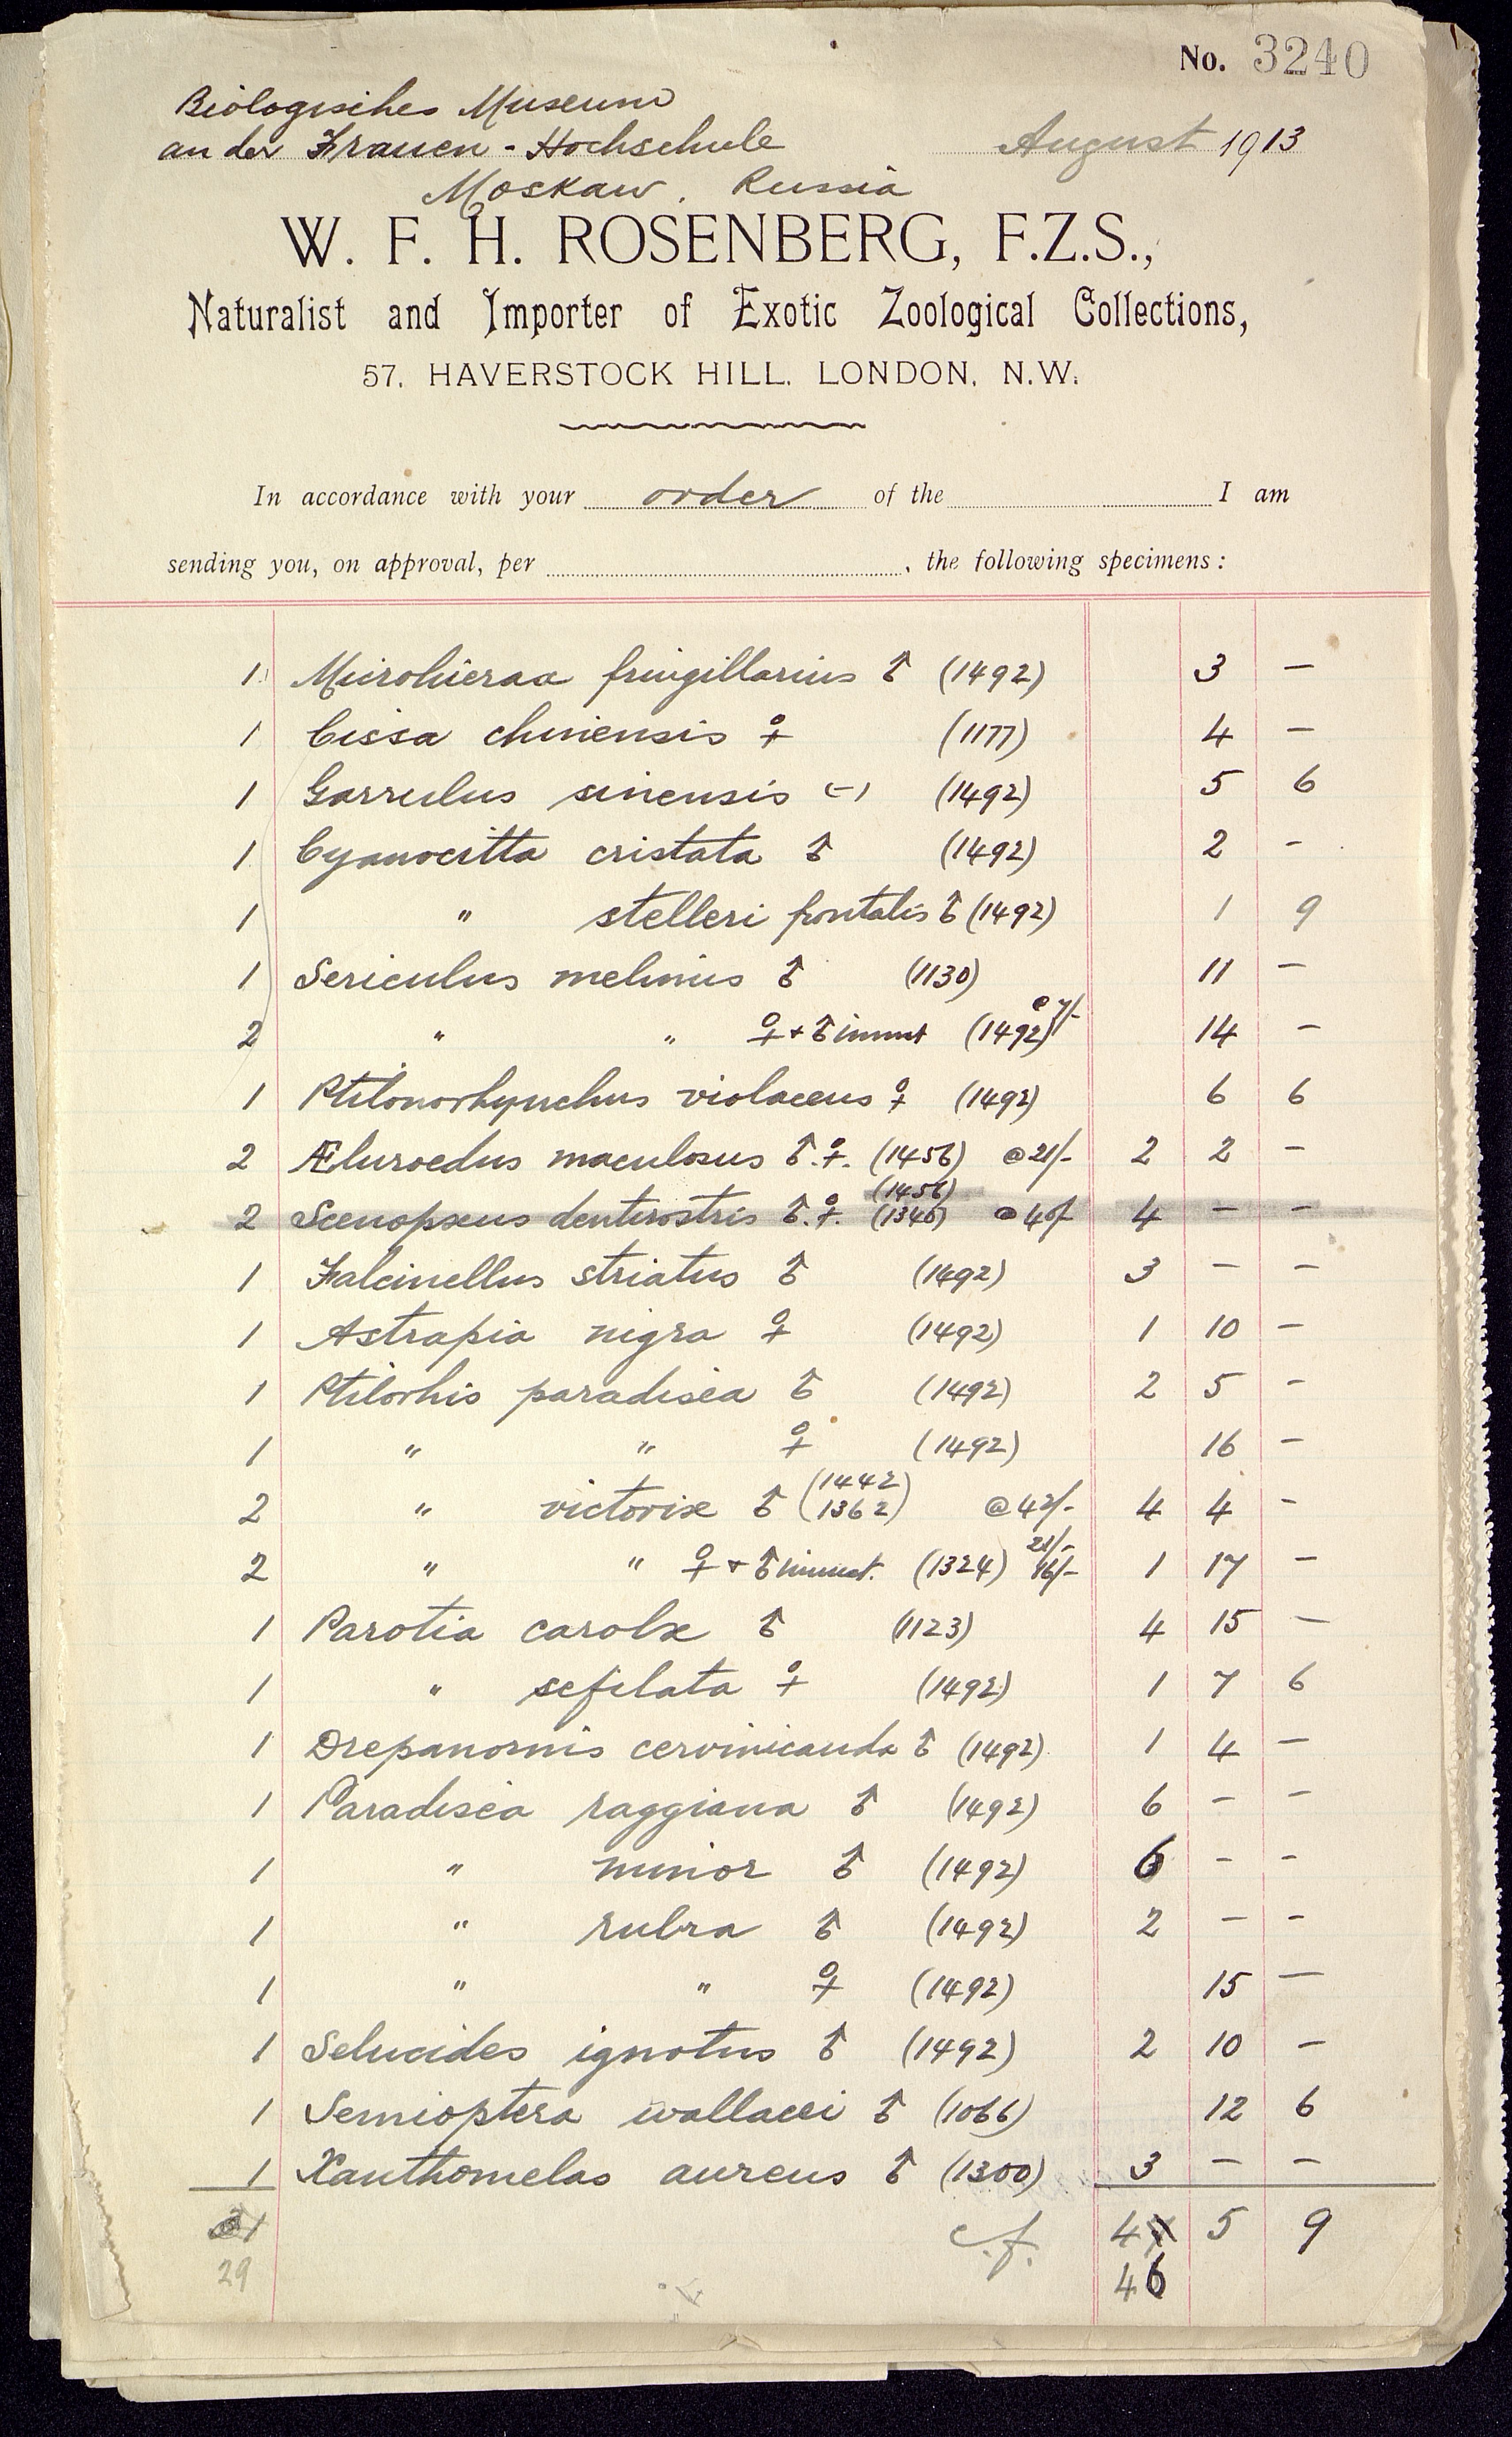 No. 3240
Biologisches Museum
an der Frauen-Hochschule
August 1913
Moskaw. Russia
W. F. H. ROSENBERG, F.Z.S.,
Naturalist and Importer of Exotic Zoological Collections,
57, HAVERSTOCK HILL, LONDON, N.W.
In accordance with your order of the I am
sending you, on approval, per , the following specimens:
1 Microhierax fringillarius ♂ (1492) 3 –
1 Cissa chinensis ♀ (1177) 4 –
1 Garrulus sinensis (–) (1492) 5 6
1 Cyanocitta cristata ♂ (1492) 2 –
1 " stelleri frontalis ♂ (1492) 1 9
1 Sericulus melinus ♂ (1130) 11 –
2 " " ♀ + ♂ immat (1492) @ 7/- 14 –
1 Ptilonorhynchus violaceus ♀ (1492) 6 6
2 Æluroedus maculosus ♂.♀. (1456) @ 21/- 2 2 –
2 Scenopæus dentirostris ♂.♀. (1456) (1346) @ 40/- 4 – –
1 Falcinellus striatus ♂ (1492) 3 – –
1 Astrapia nigra ♀ (1492) 1 10 –
1 Ptilorhis paradisea ♂ (1492) 2 5 –
1 " " ♀ (1492) 16 –
2 " victoriæ ♂ (1442 1362) @ 42/- 4 4 –
2 " " ♀ + ♂ immat. (1324) 21/- 16/- 1 17 –
1 Parotia carolæ ♂ (1123) 4 15 –
1 " sefilata ♀ (1492) 1 7 6
1 Drepanornis cervinicauda ♂ (1492) 1 4 –
1 Paradisea raggiana ♂ (1492) 6 – –
1 " minor ♂ (1492) 6 – –
1 " rubra ♂ (1492) 2 – –
1 " " ♀ (1492) 15 –
1 Selucides ignotus ♂ (1492) 2 10 –
1 Semioptera wallacei ♂ (1066) 12 6
1 Xanthomelas aureus ♂ (1300) 3 – –
c.f. 5 9
29 46